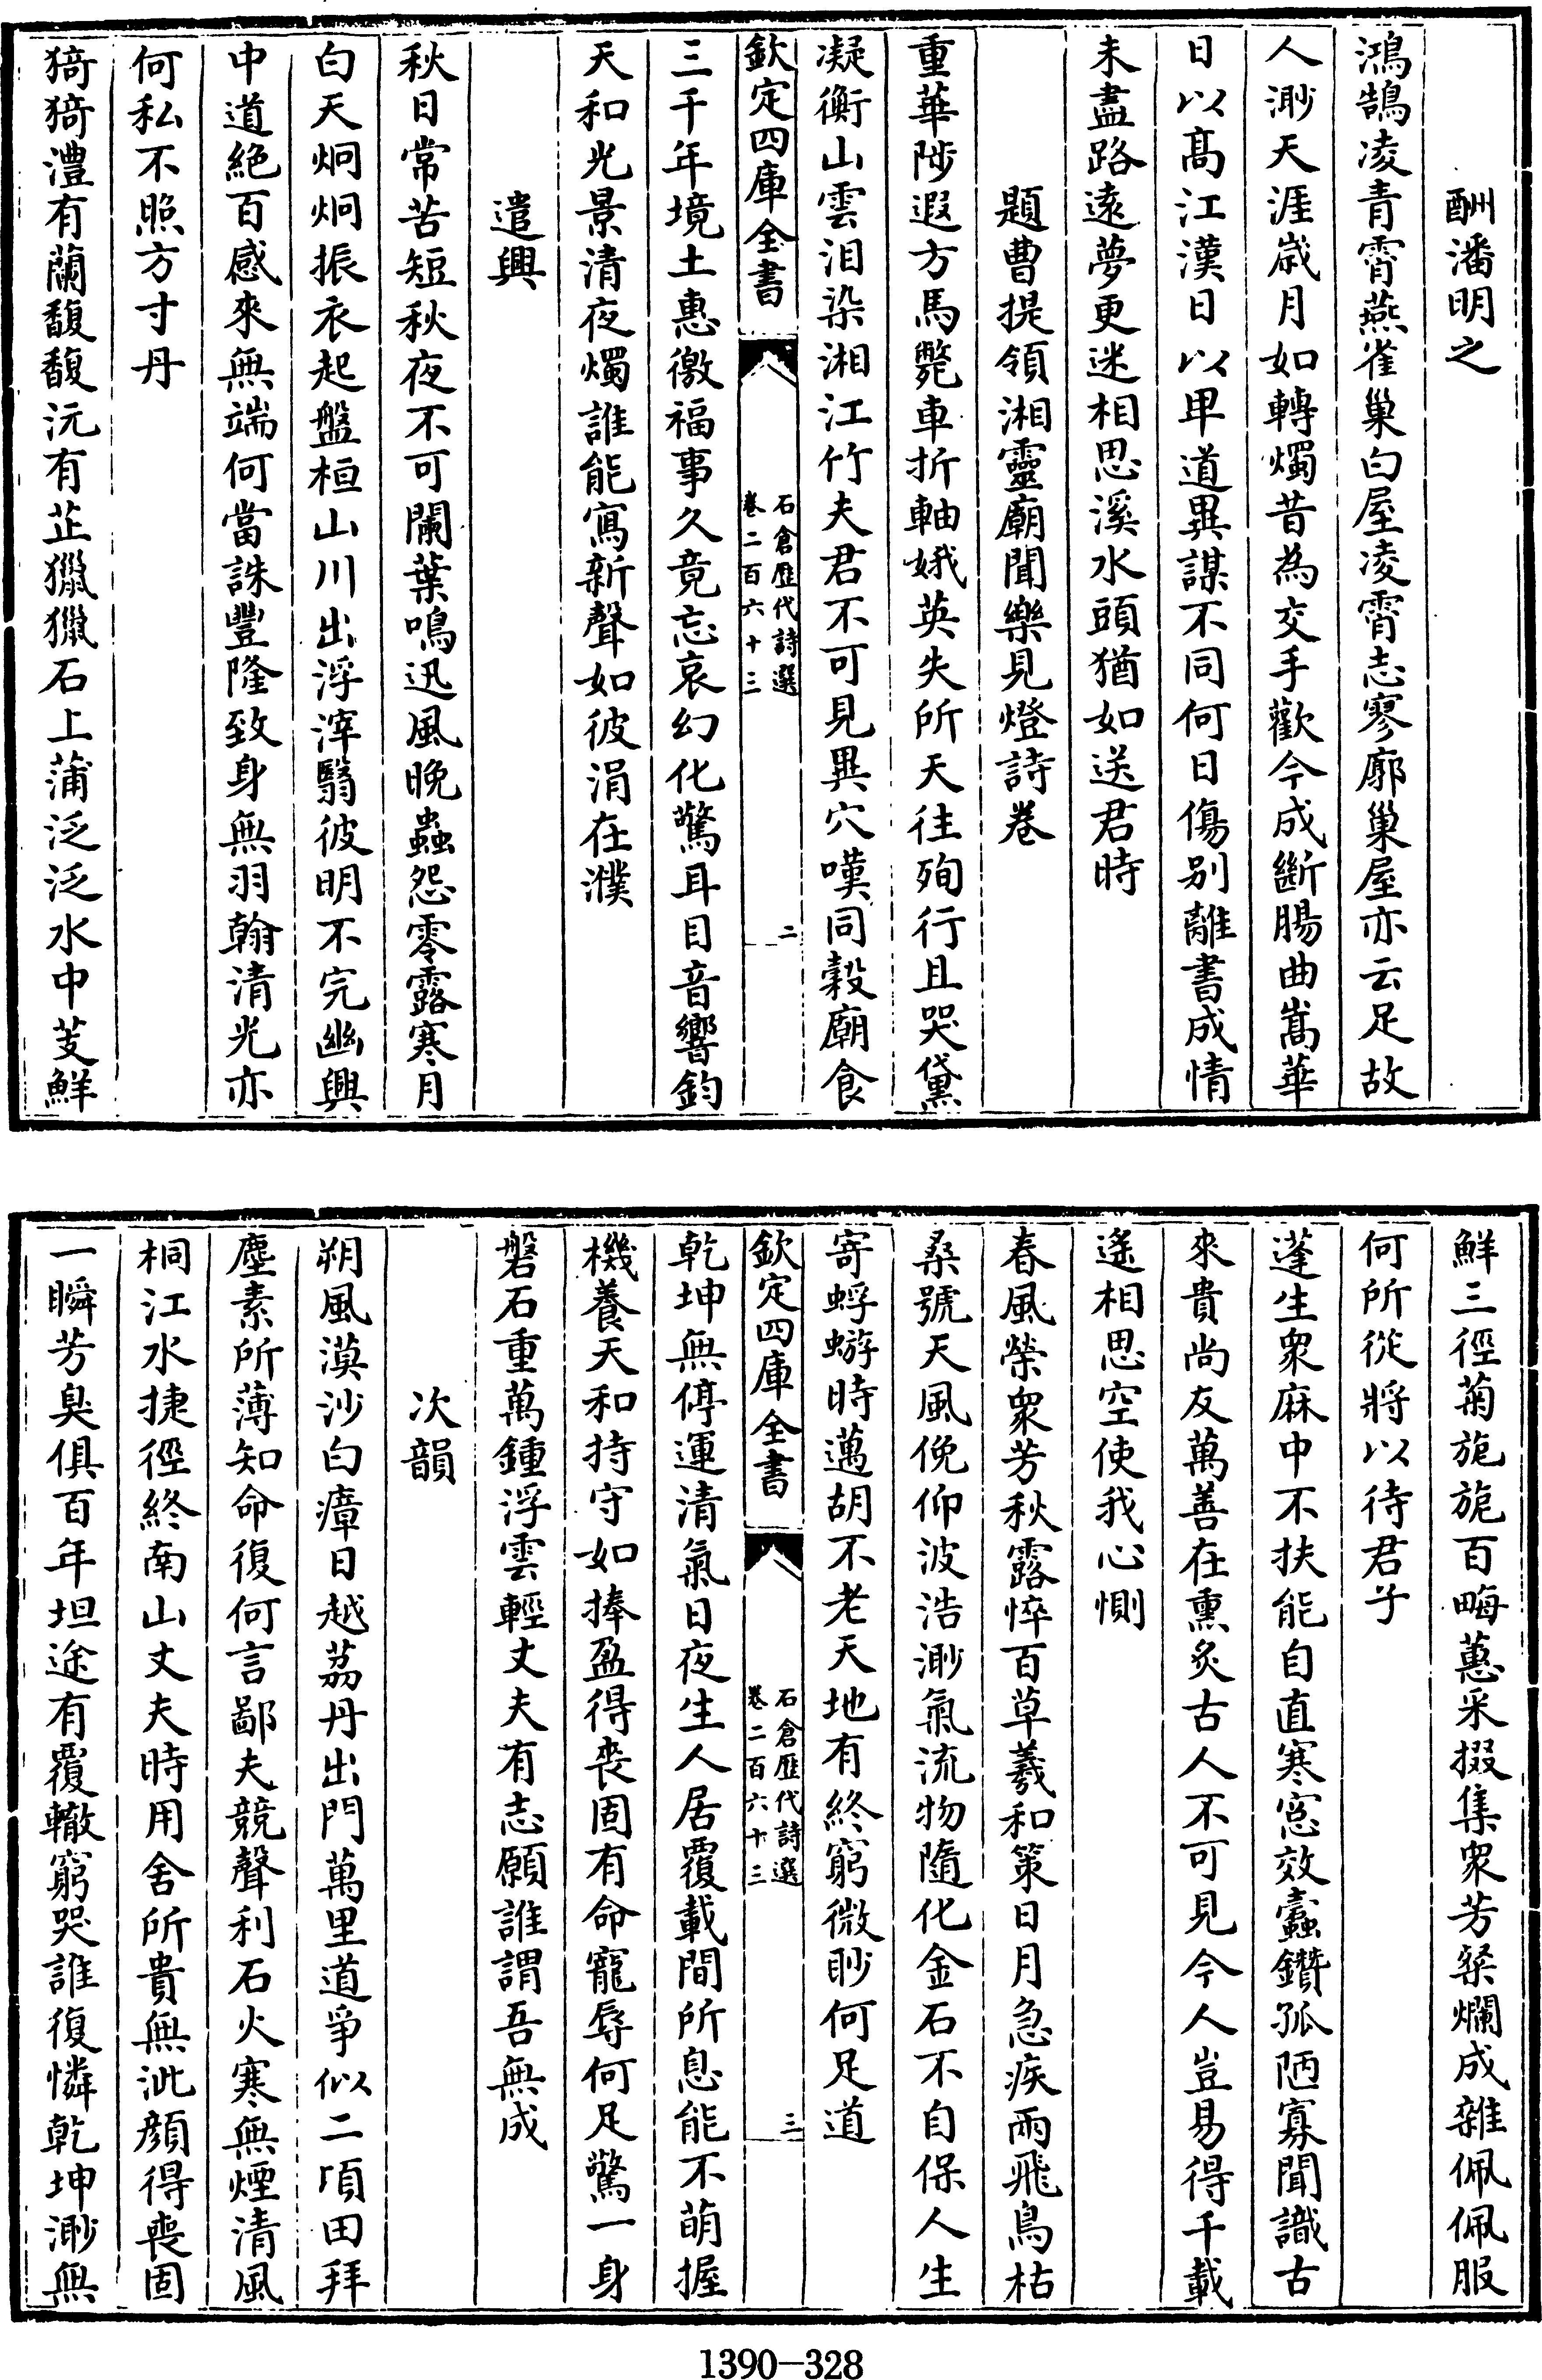 酬潘明之
鴻鵠凌青霄燕雀巢白屋凌霄志寥廓巢屋亦云足故
人渺天涯歲月如轉燭昔為交手歡今成斷腸曲嵩華
日以髙江漢日以卑道異謀不同何日傷别離書成情
未盡路遠夢更迷相思溪水頭猶如送君時
題曹提領湘靈廟聞樂見燈詩卷
重華陟遐方馬斃車折軸娥英失所天往殉行且哭黛
凝衡山雲泪染湘江竹夫君不可見異穴嘆同穀廟食
欽定四庫全書
石倉歷代詩選
卷二百六十三
二
三千年境土惠徼福事久竟忘哀幻化驚耳目音響鈞
天和光景清夜燭誰能寫新聲如彼涓在濮
遣興
秋日常苦短秋夜不可闌葉鳴迅風晚蟲怨零露寒月
白天炯炯振衣起盤桓山川出浮滓翳彼明不完幽興
中道絶百感來無端何當誅豐隆致身無羽翰清光亦
何私不照方寸丹
猗猗澧有蘭馥馥沅有芷獵獵石上蒲泛泛水中芰鮮
鮮三徑菊旎旎百畮蕙采掇集衆芳粲爛成雜佩佩服
何所從將以待君子
蓬生衆麻中不扶能自直寒窓效蠹鑽孤陋寡聞識古
來貴尚友萬善在熏炙古人不可見今人豈易得千載
遙相思空使我心惻
春風榮衆芳秋露悴百草羲和策日月急疾兩飛鳥枯
桑號天風俛仰波浩渺氣流物隨化金石不自保人生
寄蜉蝣時邁胡不老天地有終窮微眇何足道
欽定四庫全書
石倉歷代詩選
卷二百六十三
三
乾坤無停運清氣日夜生人居覆載間所息能不萌握
機養天和持守如捧盈得喪固有命寵辱何足驚一身
磐石重萬鍾浮雲輕丈夫有志願誰謂吾無成
次韻
朔風漠沙白瘴日越荔丹出門萬里道爭似二頃田拜
塵素所薄知命復何言鄙夫競聲利石火寒無煙清風
桐江水捷徑終南山丈夫時用舍所貴無泚顔得喪固
一瞬芳臭俱百年坦途有覆轍窮哭誰復憐乾坤渺無
1390—328